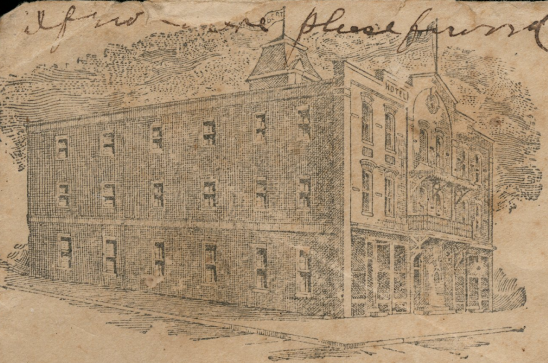 If not here please forward
HOTEL